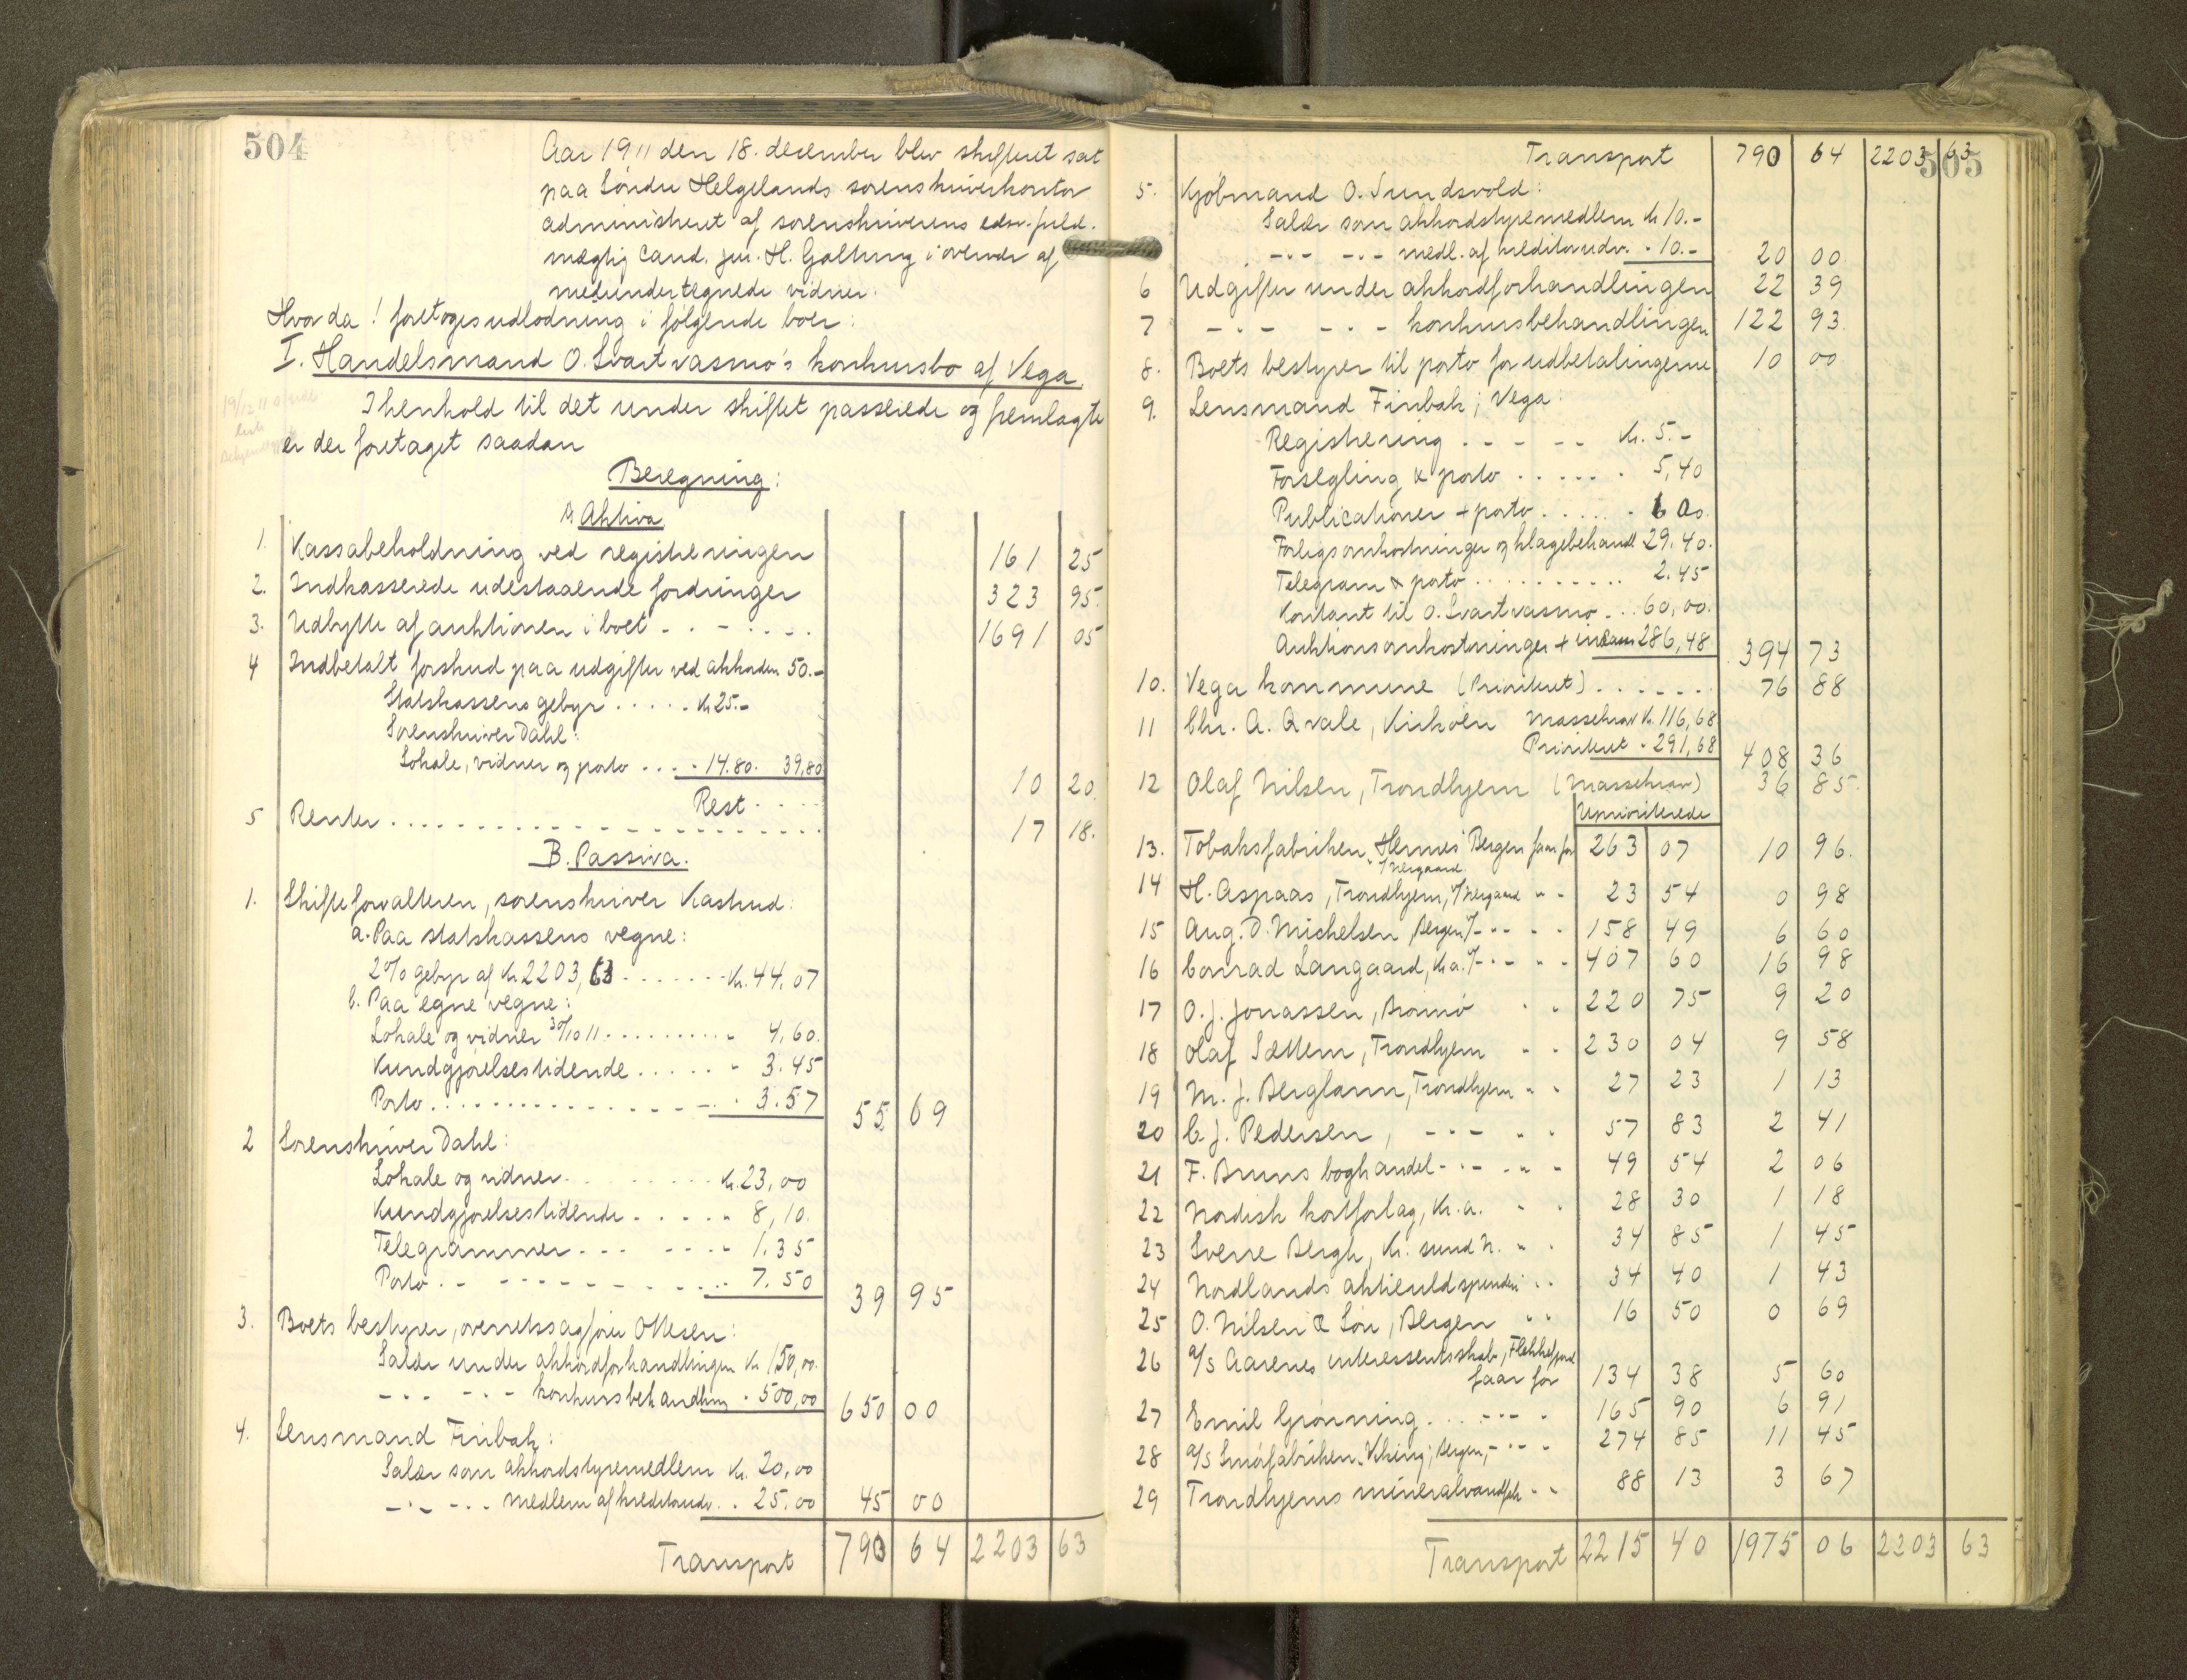 504
Aar 1911 den 18. december blev skifteret sat
paa Søndre Helgelands sorenskriverkontor
administreret af sorenskriverens edsv. fuld-
mægtig Cand. jur. H. Galtung i overvær af
medundertegnede vidner.
Hvor da! foretoges udlodning i følgende boer:
I. Handelsmand O. Svartvasmo's konkursbo af Vega
19/12 11
I henhold til det under skiftet passerede og fremlagte
er der foretaget saadan
Beregning:
A. Aktiva
1. Kassabeholdning ved registreringen 161 25
2. Indkasserede udestaaende fordringer 323 95.
3. Udbytte af auktionen i boet - . - . . . . 1691 05
4 Indbetalt forskud paa udgifter ved akkorden 50.-
Statskassens gebyr . . . . . Kr 25.-
Sorenskriver Dahl:
Lokale, vidner og porto . . . . 14.80. 39,80
Rest . . . . 10 20.
5 Renter . . . . . . . . . . 17 18.
B. Passiva.
1. Skifteforvalteren, sorenskriver Kastrud:
a. Paa statskassens vegne:
2% gebyr af Kr 2203,63 . . . . . . . Kr. 44,07
b. Paa egne vegne:
Lokale og vidner 30/10 11 . . . . . . . . . . 4,60.
Kundgjørelsestidende . . . . . . 3.45
Porto . . . . . . . . . . . . 3.57 55 69
2 Sorenskriver Dahl:
Lokale og vidner . . . . . . . . . Kr. 23,00
Kundgjørelsestidende . . . . . 8,10.
Telegrammer - - - - - - - 1.35
Porto . . - - - - - - - - 7.50 39 95
3. Boets bestyrer, overretssagfører Ottesen:
Salær under akkordforhandlingen Kr 150,00.
- . - - . - konkursbehandling . 500,00 650 00
4. Lensmand Finbak:
Salær som akkordstyremedlem Kr. 20,00
- . - - . - medlem af kreditorudv. . 25.00 45 00
Transport 790 64 2203 63
505
Transport 790 64 2203 63
5. Kjøbmand O. Sundsvold:
Salær som akkordstyremedlem Kr 10.-
- . - - . - medl. af kreditorudv. - 10.- 20 00
6 Udgifter under akkordforhandlingen 22 39
7 - . - - . - konkursbehandlingen 122 93.
8. Boets bestyrer til porto for udbetalingerne 10 00
9. Lensmand Finbak, Vega:
Registrering . - - - - Kr. 5.-
Forsegling & porto . . . . . . 5,40
Publicationer + porto . . . . . 6 00.
Forligsomkostninger og klagebehandl 29.40.
Telegram & porto . . . . . . . . . . 2.45
Kontant til O. Svartvasmo - . . 60,00.
Auktionsomkostninger + inkasso 286,48 394 73
10. Vega kommune (Prioriteret) . . . . . . 76 88
11 Chr. A. Qvale, Kirkøen Massekrav Kr. 116,68
Prioriteret - 291,68 408 36
12 Olaf Nilsen, Trondhjem (Massekrav) 36 85.
Uprioriterede
13. Tobaksfabriken "Hermes" Bergen faar for 263 07 10 96.
v/Nergaard
14 H. Aspaas, Trondhjem, v/Nergaard " " 23 54 0 98
15 Aug. D. Michelsen, Bergen v/- " - " " 158 49 6 60
16 Conrad Langaard, Kr.a. v/- " - " " 407 60 16 98
17 O. J. Jonassen, Brønnø " " 220 75 9 20
18 Olaf Sættem, Trondhjem " " 230 04 9 58
19 M. J. Berglann, Trondhjem " " 27 23 1 13
20 C. J. Pedersen, - - - " " 57 83 2 41
21 F. Bruns boghandel - . - " " 49 54 2 06
22 Nordisk kortforlag, Kr.a. " " 28 30 1 18
23 Sverre Bergh, Kr. sund N. " " 34 85 1 45
24 Nordlands aktieuldspinderi " " 34 40 1 43
25 O. Nilsen & Søn, Bergen " " 16 50 0 69
26 A/S Aarenes interessentskab, Flekkefjord
faar for 134 38 5 60
27 Emil Grønning . . . - - - " 165 90 6 91
28 A/S Smørfabriken "Viking", Bergen, - " - " 274 85 11 45
29 Trondhjems mineralvandfabr. " " 88 13 3 67
Transport 2215 40 1975 06 2203 63